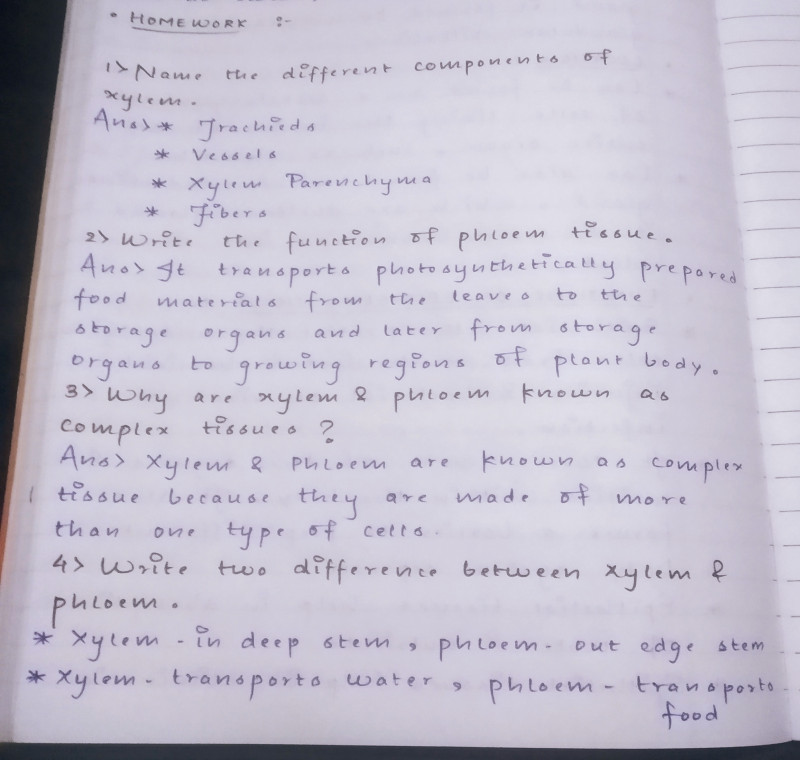 • HOMEWORK :-
1> Name the different components of
xylem.
Ans> * Trachieds
* Vessels
* Xylem Parenchyma
* Fibers
2> Write the function of phloem tissue.
Ans> It transports photosynthetically prepared
food materials from the leaves to the
storage organs and later from storage
organs to growing regions of plant body.
3> Why are xylem & phloem known as
complex tissues ?
Ans> Xylem & Phloem are known as complex
tissue because they are made of more
than one type of cells.
4> Write two difference between xylem &
phloem.
* Xylem - in deep stem, phloem - out edge stem
* Xylem - transports water, phloem - transports
food